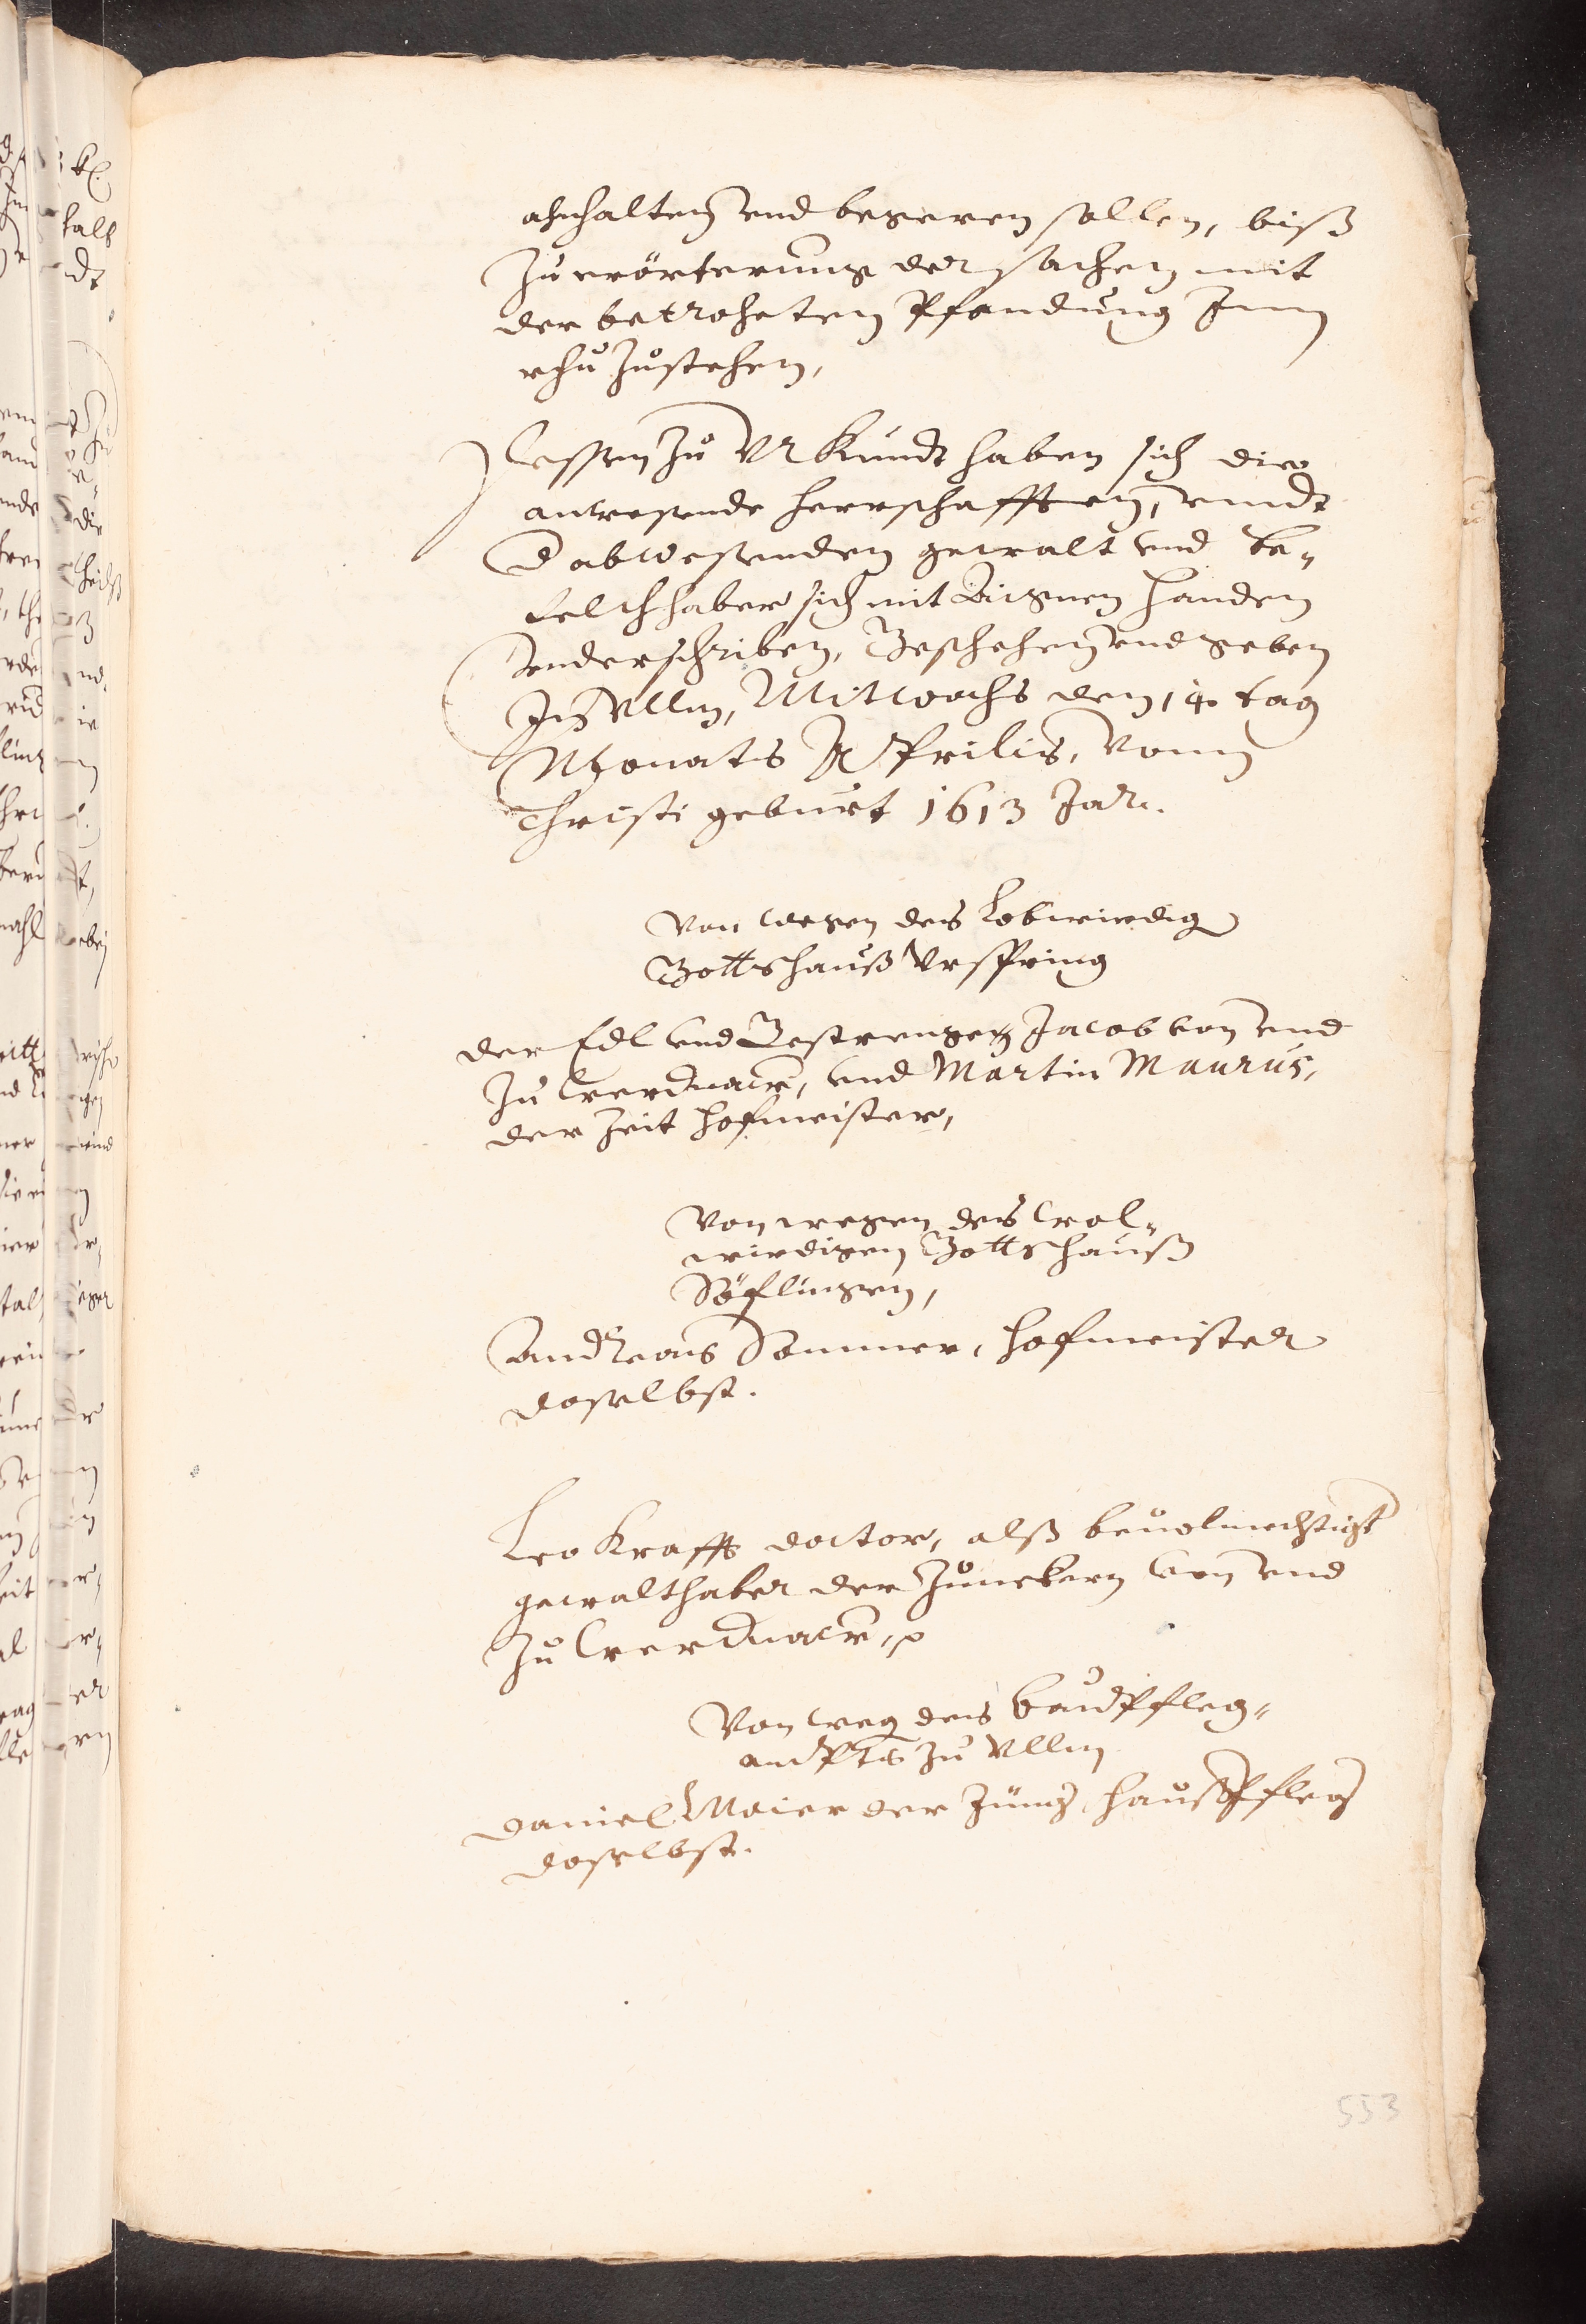 ahnhalten vnd begeren sollen, biß
zu erörterung der sachen mit
der betroheten Pfandung Inn
rhu zustehen,
Dessen zu Vrkundt haben sich die
anwesende herrschafften, vnndt
d abwesenden gewalt vnd be-
felchhaber sich mit Aignen handen
vnderschriben, Beschehen vnd geben
In Vllm, Mitwochs den 14 tag
Monats Aprilis, Vonn
Christi geburt 1613 Jar.
Von wegen des Lobwirdig
Gottshauß Vrspring
der Edl vnd Gestrenge Jacob von vnd
zu Werdnaw, vnd Martin Maurus,
der zeit hofmeister,
Von wegen des Wol-
wirdigen Gottshauß
Söflingen,
Andreas Sommer, hofmeister
daselbst.
Leo Krafft doctor, alß beuolmechtigt
gewalthaber der Junckern von vnd
zu Werdnaw,
Von weg des baudpfleg-
ambts zu Vllm
Daniel Maier der Jung, haußpfleg
daselbst.
553